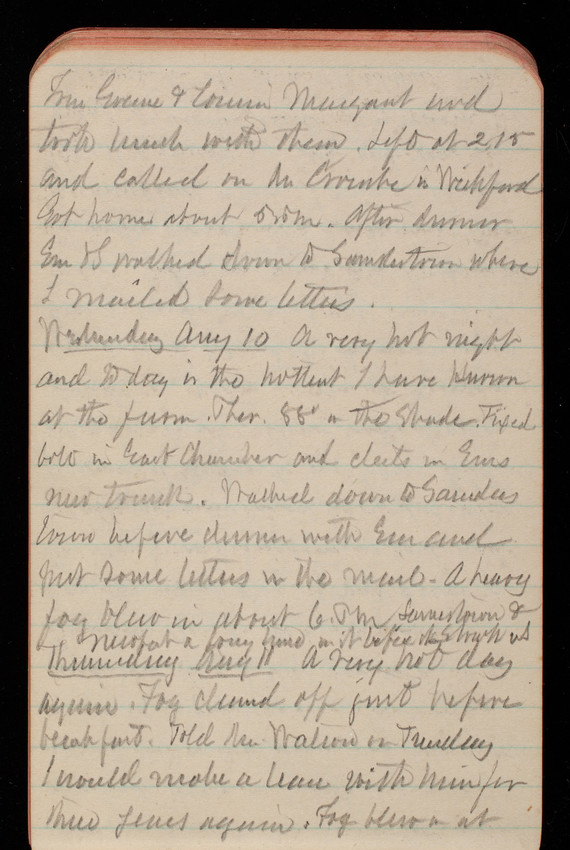 Tom Greene & Louisa Margant and
took lunch with them. Left at 2.15
and called on Mr Crombe in Wickford
Got home about 5 P.m. After dinner
Em & I walked down to Saunderstown where
I mailed some letters.
Wednesday Aug 10 A very hot night
and to day is the hottest I have known
at the farm. Ther. 88° in the Shade. Fixed
bolt in East Chamber and cleats in Ems
new trunk. Walked down to Saunders
town before dinner with Em and
put some letters in the mail - A heavy
fog blew in about 6. P.m. Jamestown &
Newport a long time in it before it struck us
Thursday Aug 11 A very hot day
again. Fog cleared off just before
breakfast. Told Mr Watson on Tuesday
I would make a lease with him for
three years again. Fog blew in at